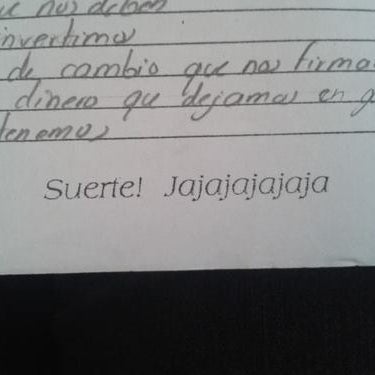 que nos deben
invertimos
de cambio que nos firma
dinero que dejamos en g
tenemos
Suerte! Jajajajajaja